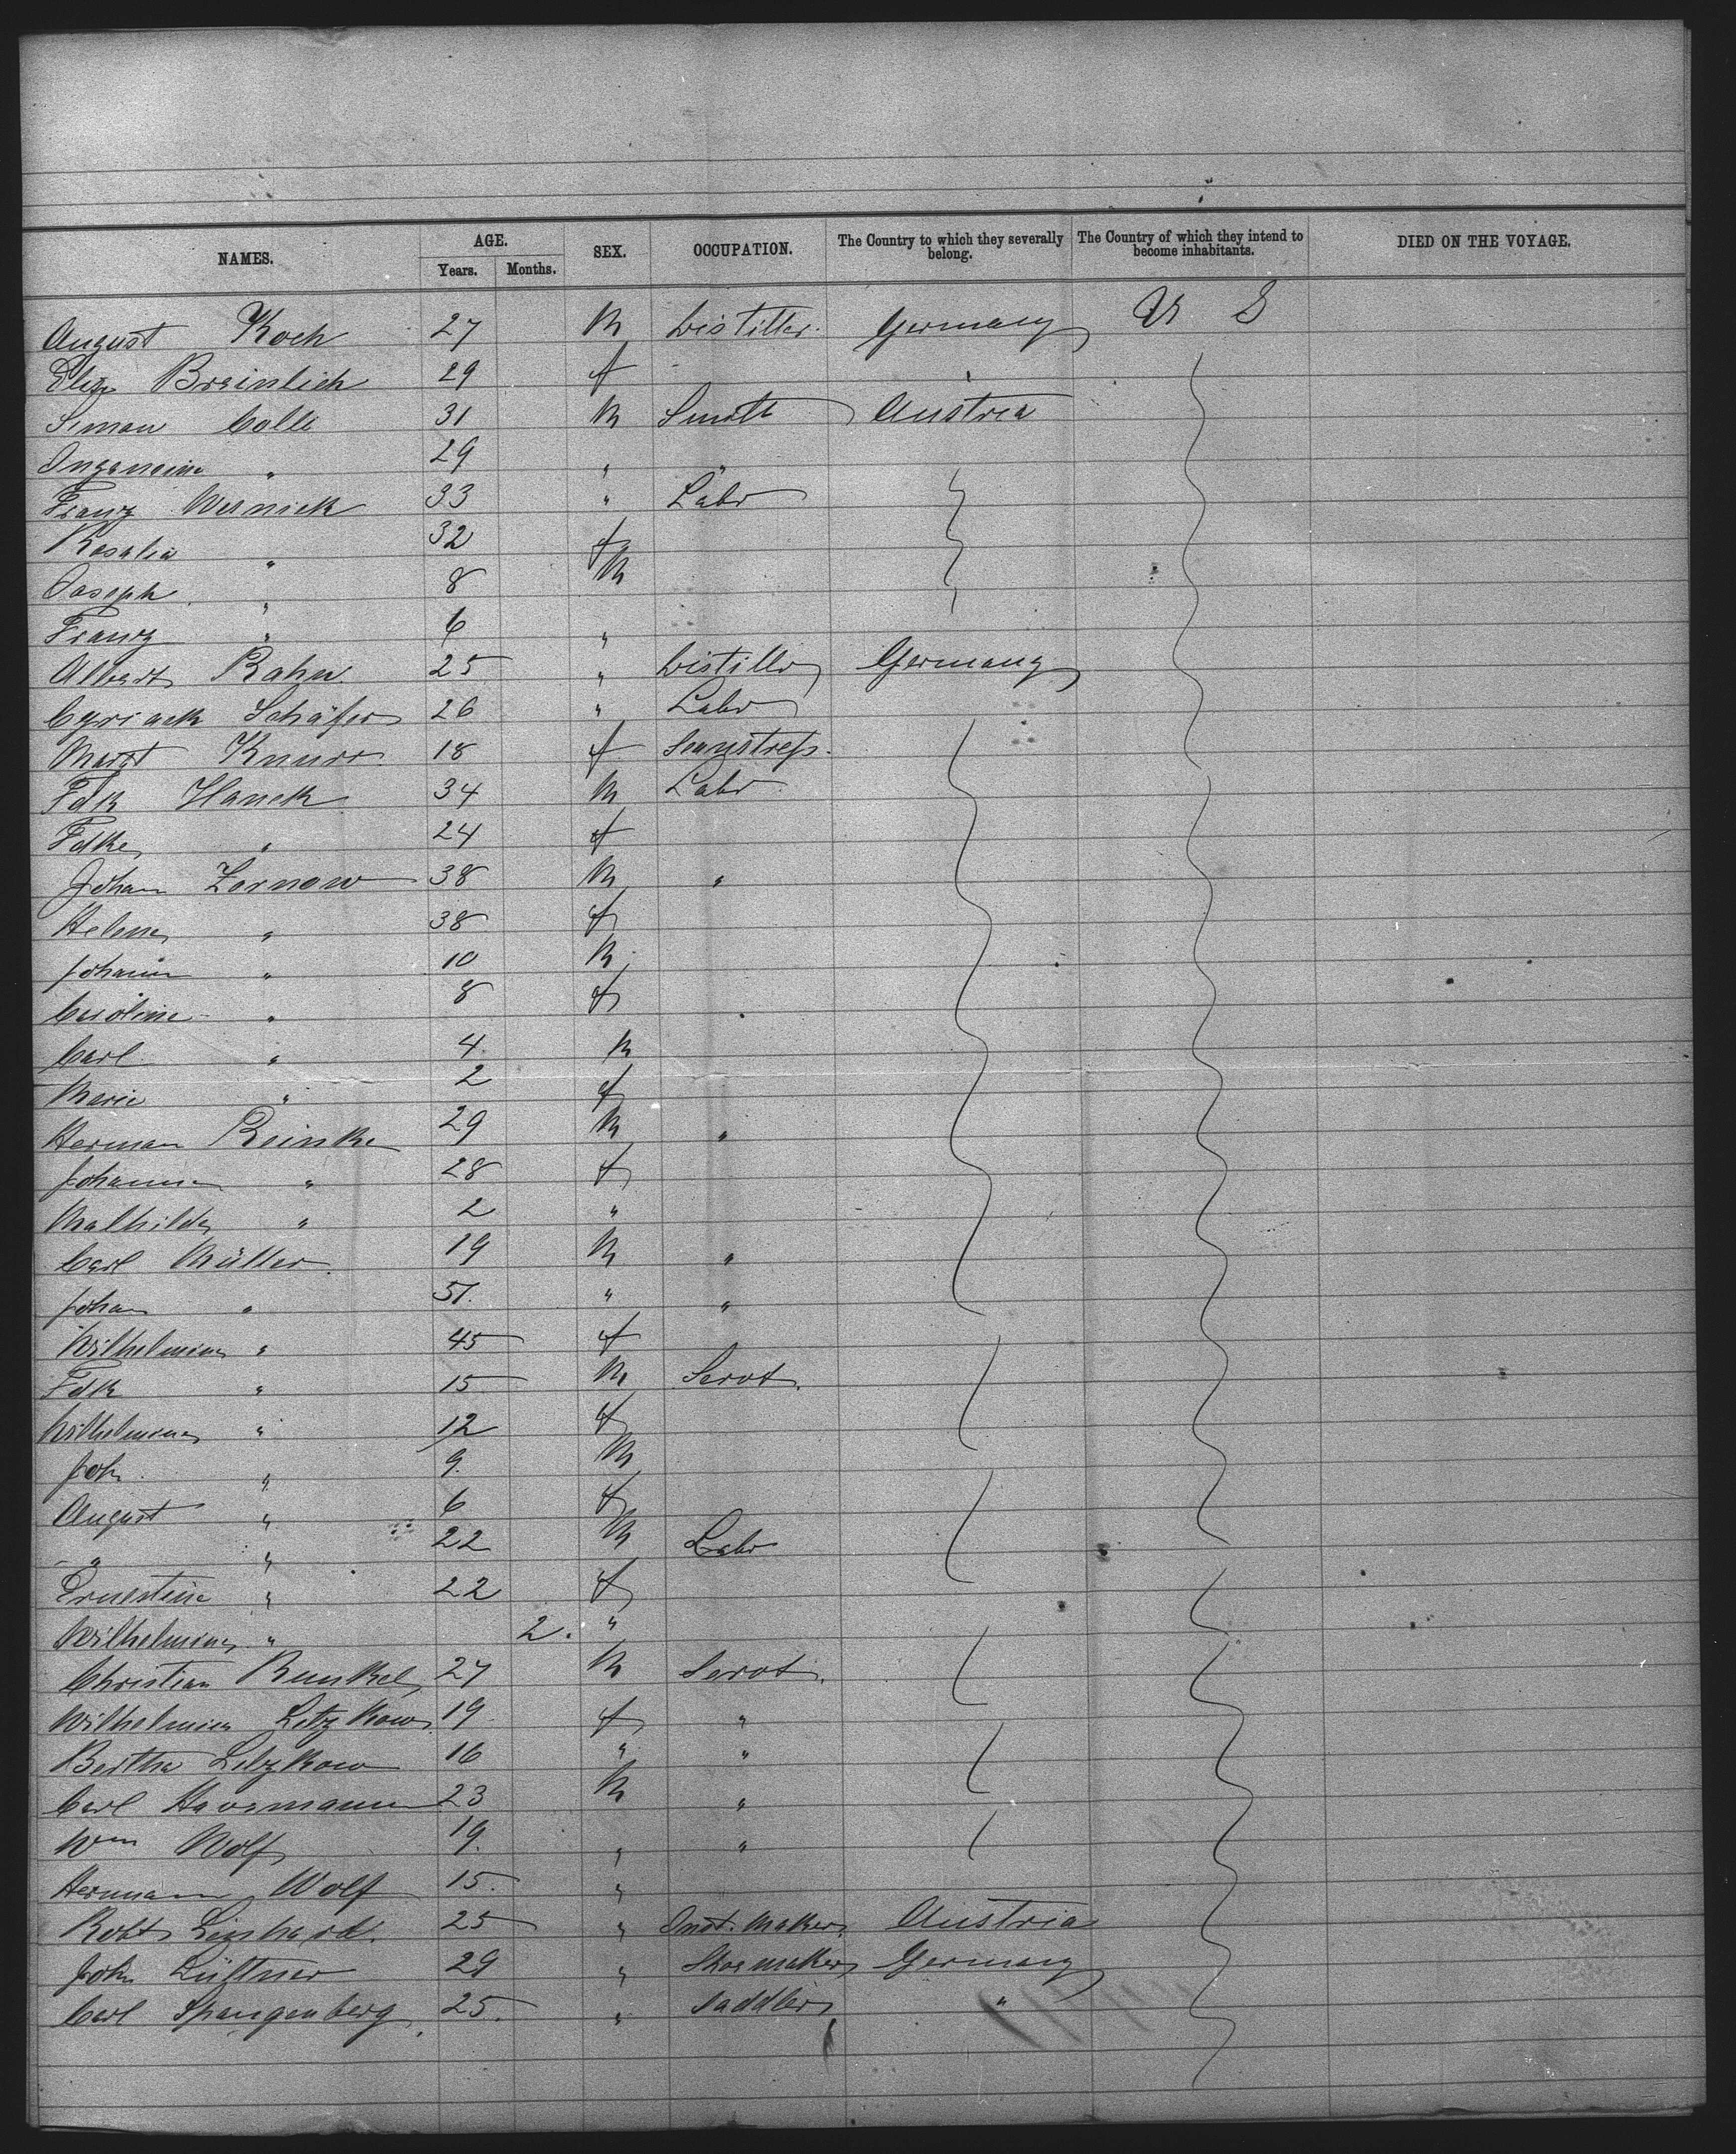 NAMES. AGE. Years. Months. SEX. OCCUPATION. The Country to which they severally belong. The Country of which they intend to become inhabitants. DIED ON THE VOYAGE.
August Koch 27 M Distiller. Germany U S
Eliz Breinlich 29 f
Simon Colle 31 M Smith Austria
" 29 " "
Franz Wernick 33 " Labr
Rosalia " 32 f
Joseph " 8 M
Franz " 6 "
Albert Rahn 25 " Distiller Germany
Cyriack Schäfer 26 " Labr
Margt Knurr 18 f Seamstress.
Fdk Hanek 34 M Labr
Fdke " 24 f
Johan Zornow 38 M "
Helene " 38 f
Johann " 10 M
Caroline " 8 f
Carl " 4 M
Marie " 2 f
Herman Reinke 29 M "
Johanna " 28 f
Mathilde " 2 "
Carl Müller 19 M "
Johan " 51. " "
Wilhelmina " 45 f
Fdk " 15 M Servt.
Wilhelmina " 12 f
Joh. " 9. M
August " 6 f
" " 22 M Labr
Ernestine " 22 f
Wilhelmina " 2. "
Christian Runkel 27 M Servt.
Wilhelmina Letzkow 19 f "
Bertha Letzkow 16 " "
Carl Havemann 23 M "
Wm Wolf 19. " "
Hermann Wolf 15. "
Robt Linhardt. 25 " Inst. Maker Austria
John Lüttner 29 " Shoemaker Germany
Carl Spangenberg 25. " Saddler "